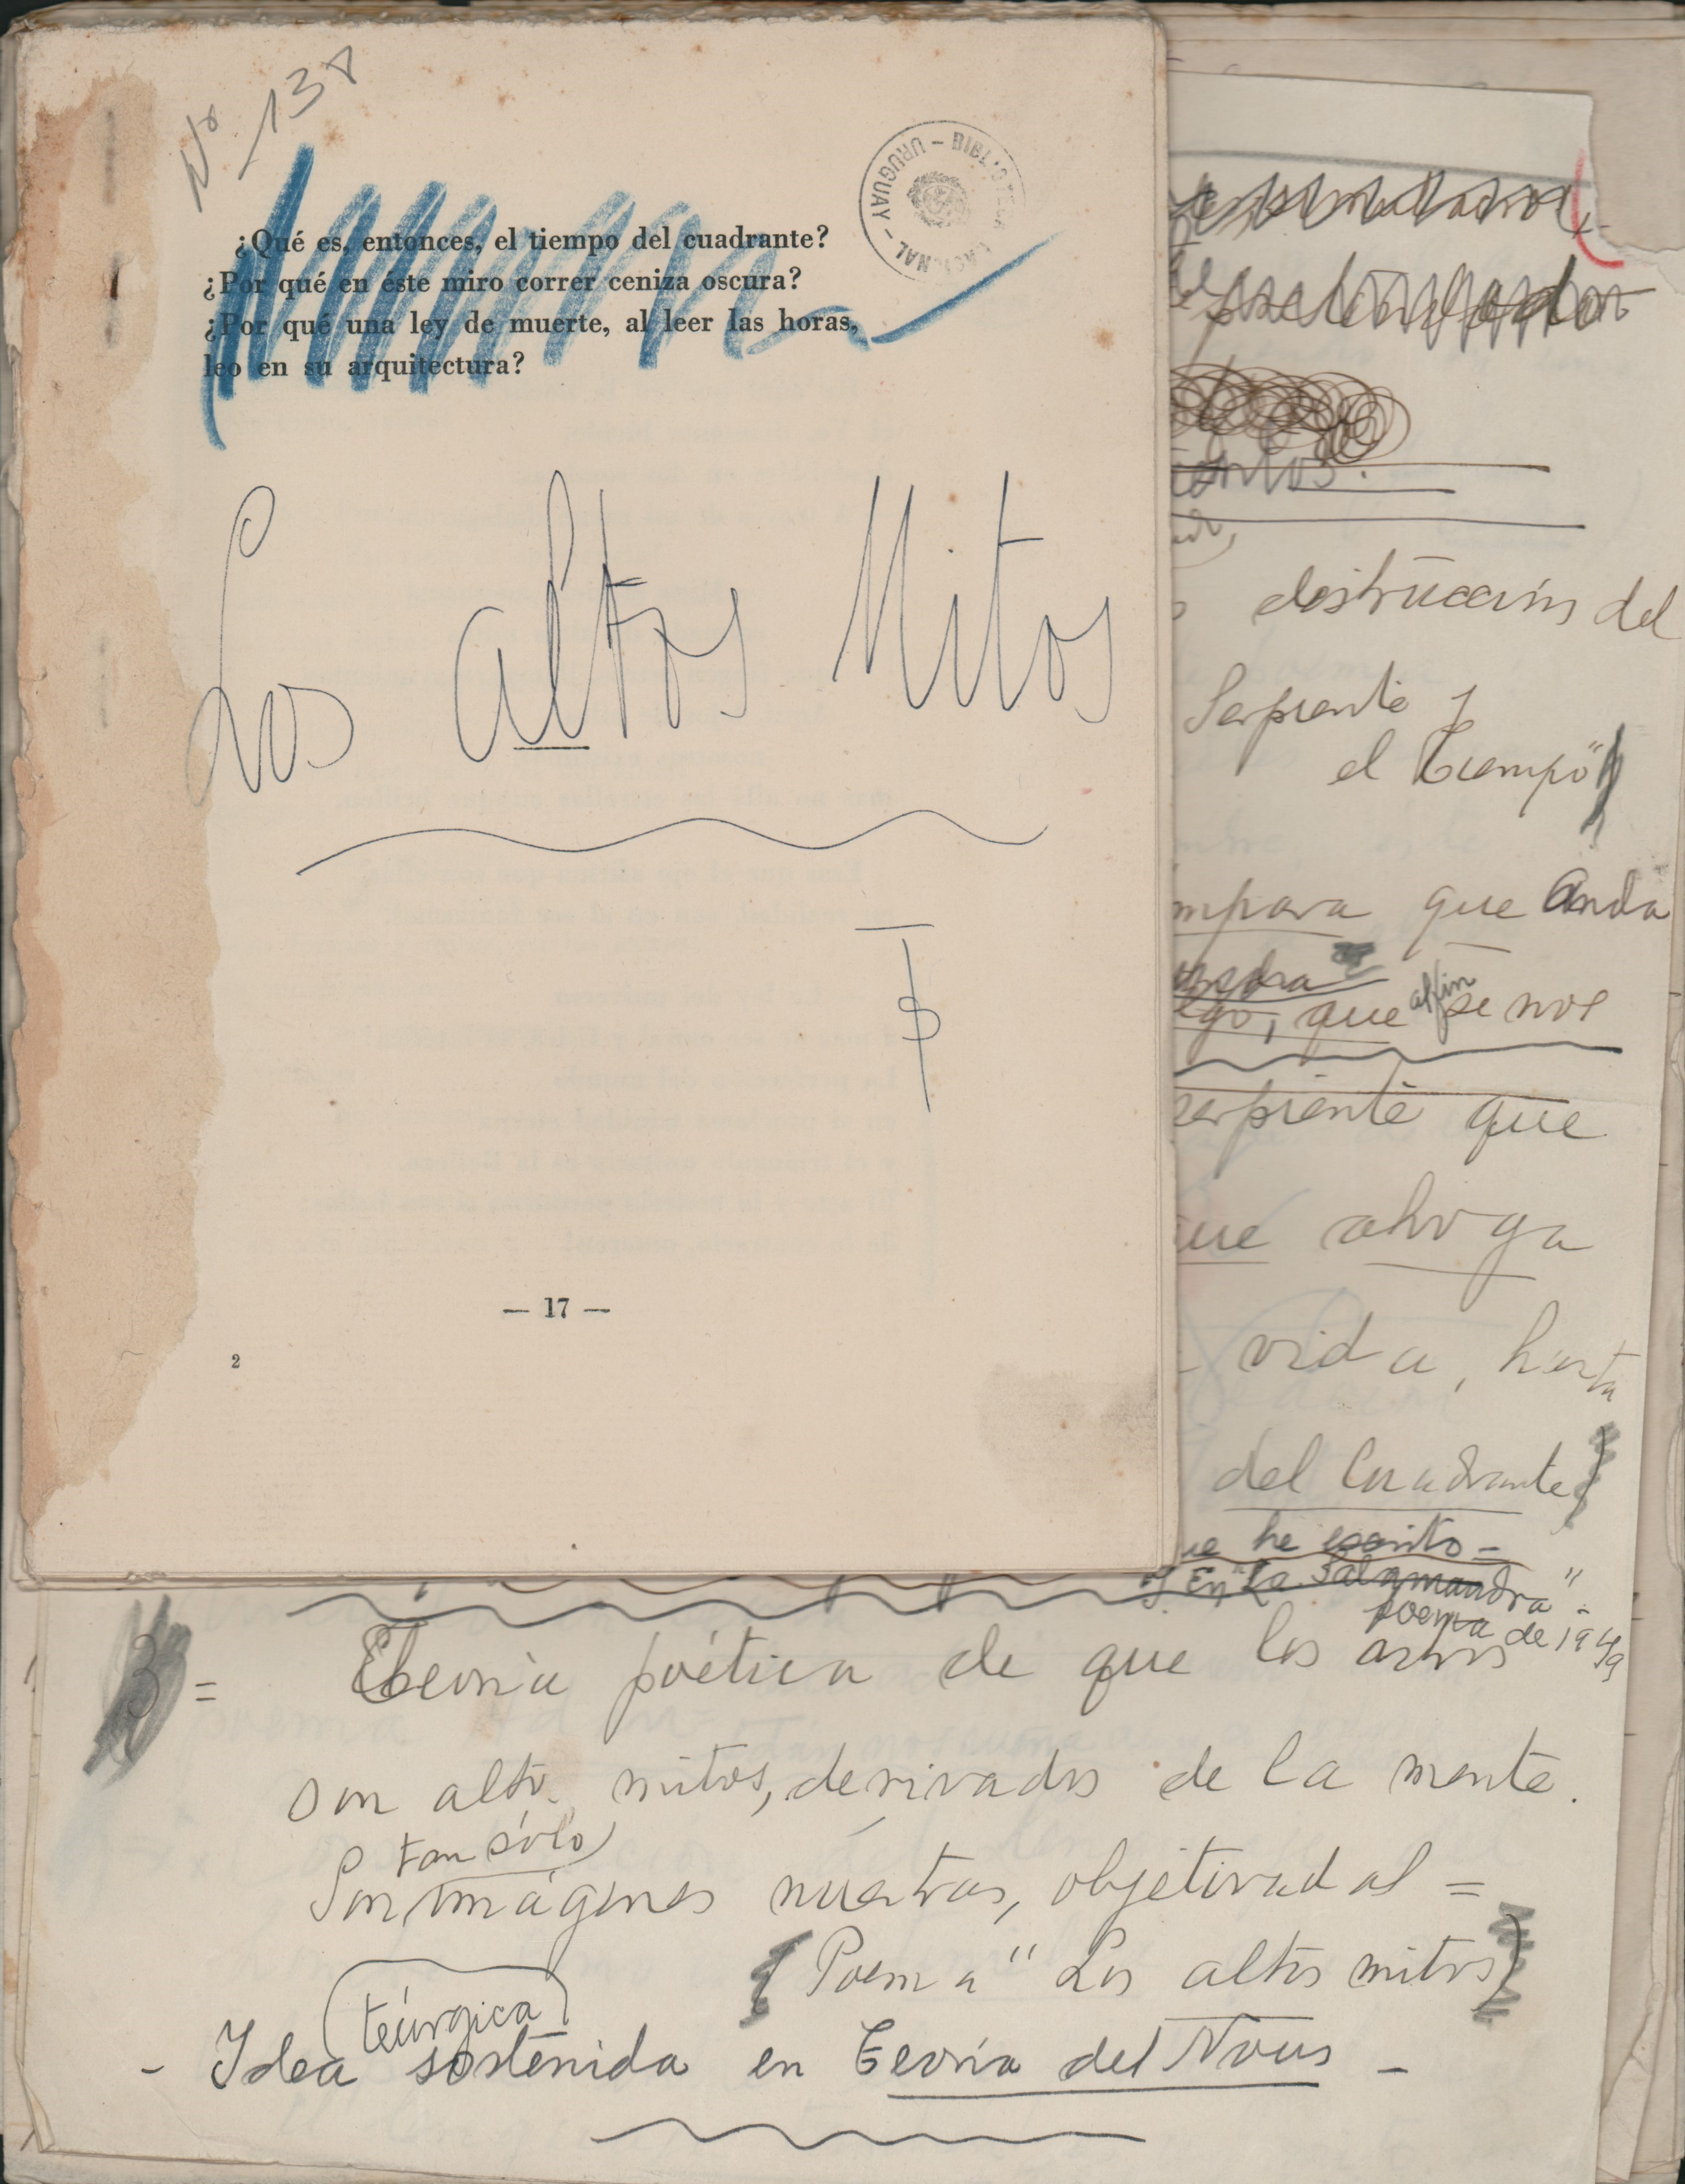 No 138
BIBLIOTECA NACIONAL - URUGUAY -
¿Qué es, entonces, el tiempo del cuadrante?
¿Por qué en éste miro correr ceniza oscura?
¿Por qué una ley de muerte, al leer las horas,
leo en su arquitectura?
Los altos Mitos
— 17 —
2
destrucción del
Serpiente y
el Tiempo"
mpara que anda
al fin
ego, que se nos
serpiente que
que ahoga
vida, hasta
del Cuadrante)
ue he escrito -
y En "La Salamandra" -
poema de 1949
3 = Teoría poética de que los astros
son altos mitos, derivados de la mente.
tan sólo
Son imágenes nuestras, objetivadas =
(Poema "Los altos mitos)
(teúrgica)
- Idea sostenida en Teoría del Nous -